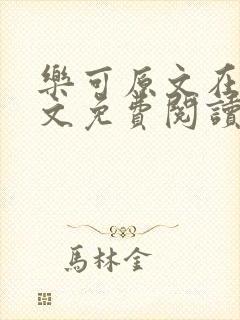 樂可原文在
文免費閱讀
馬林金